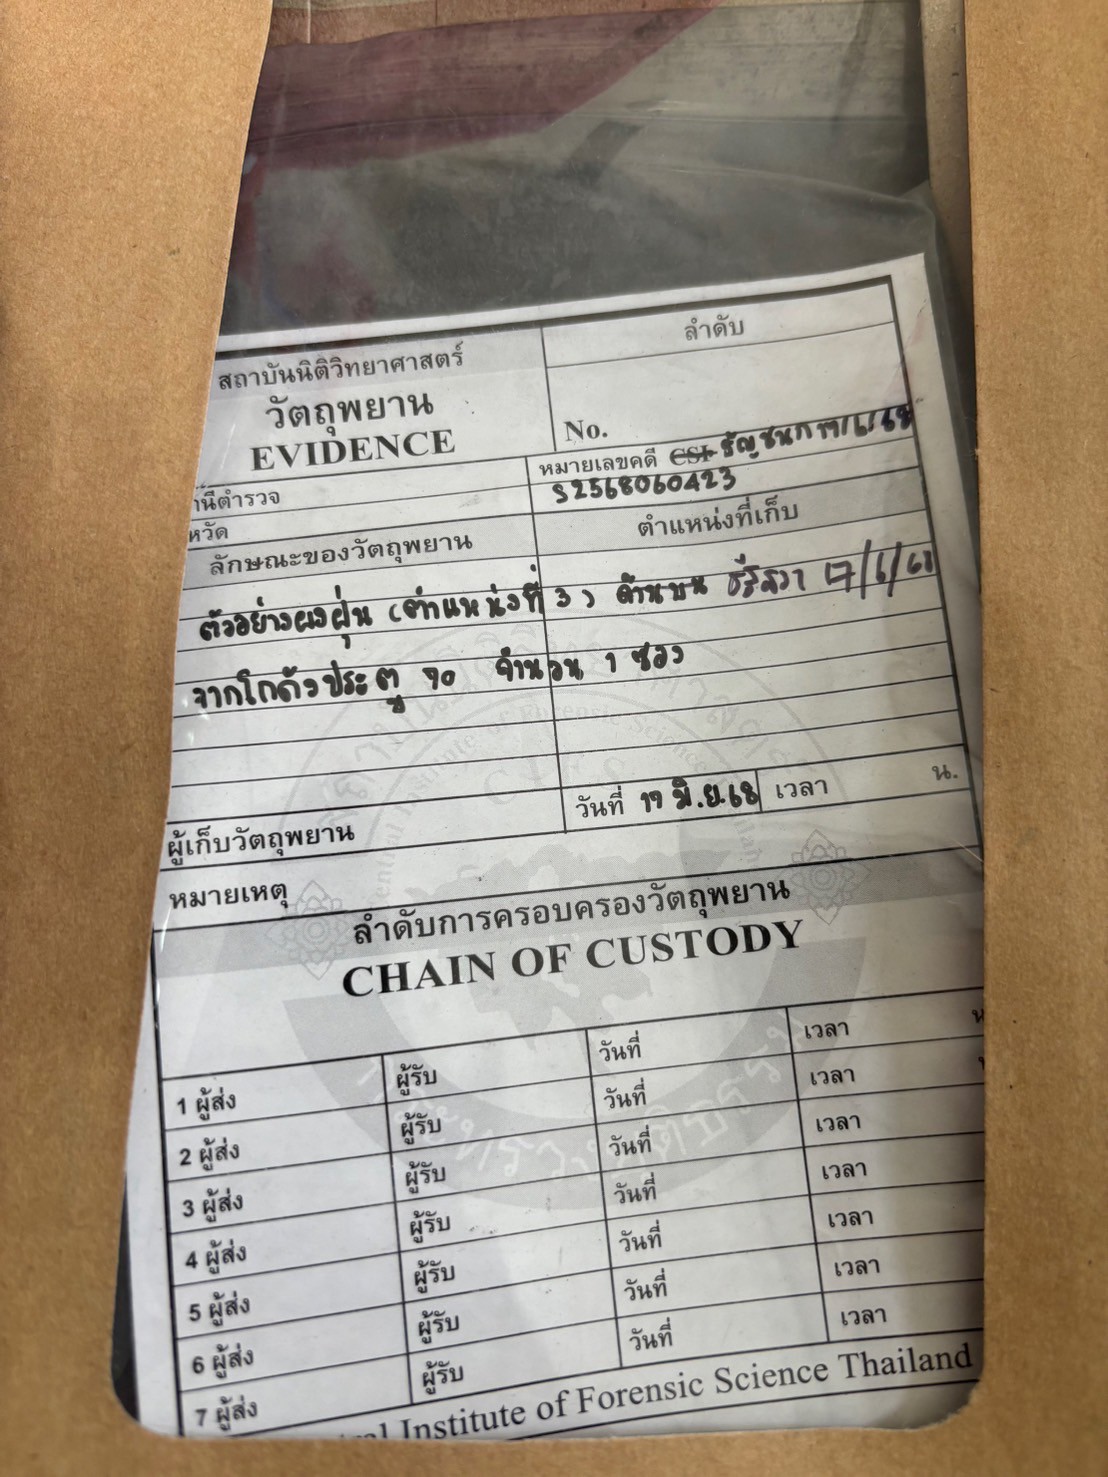 ลำดับ
สถาบันนิติวิทยาศาสตร์
วัตถุพยาน
EVIDENCE
No.
หมายเลขคดี CSI ธัญชนก 17/6/68
S2568060423
นีตำรวจ
หวัด
ลักษณะของวัตถุพยาน ตำแหน่งที่เก็บ
ตัวอย่างผงฝุ่น (ตำแหน่งที่ 3) ด้านบน 17/6/68
จากโกดังประตู 70 จำนวน 1 ซอง
วันที่ 17 มิ.ย.68 เวลา น.
ผู้เก็บวัตถุพยาน
หมายเหตุ
ลำดับการครอบครองวัตถุพยาน
CHAIN OF CUSTODY
1 ผู้ส่ง ผู้รับ วันที่ เวลา
2 ผู้ส่ง ผู้รับ วันที่ เวลา
3 ผู้ส่ง ผู้รับ วันที่ เวลา
4 ผู้ส่ง ผู้รับ วันที่ เวลา
5 ผู้ส่ง ผู้รับ วันที่ เวลา
6 ผู้ส่ง ผู้รับ วันที่ เวลา
7 ผู้ส่ง ผู้รับ วันที่ เวลา
Institute of Forensic Science Thailand